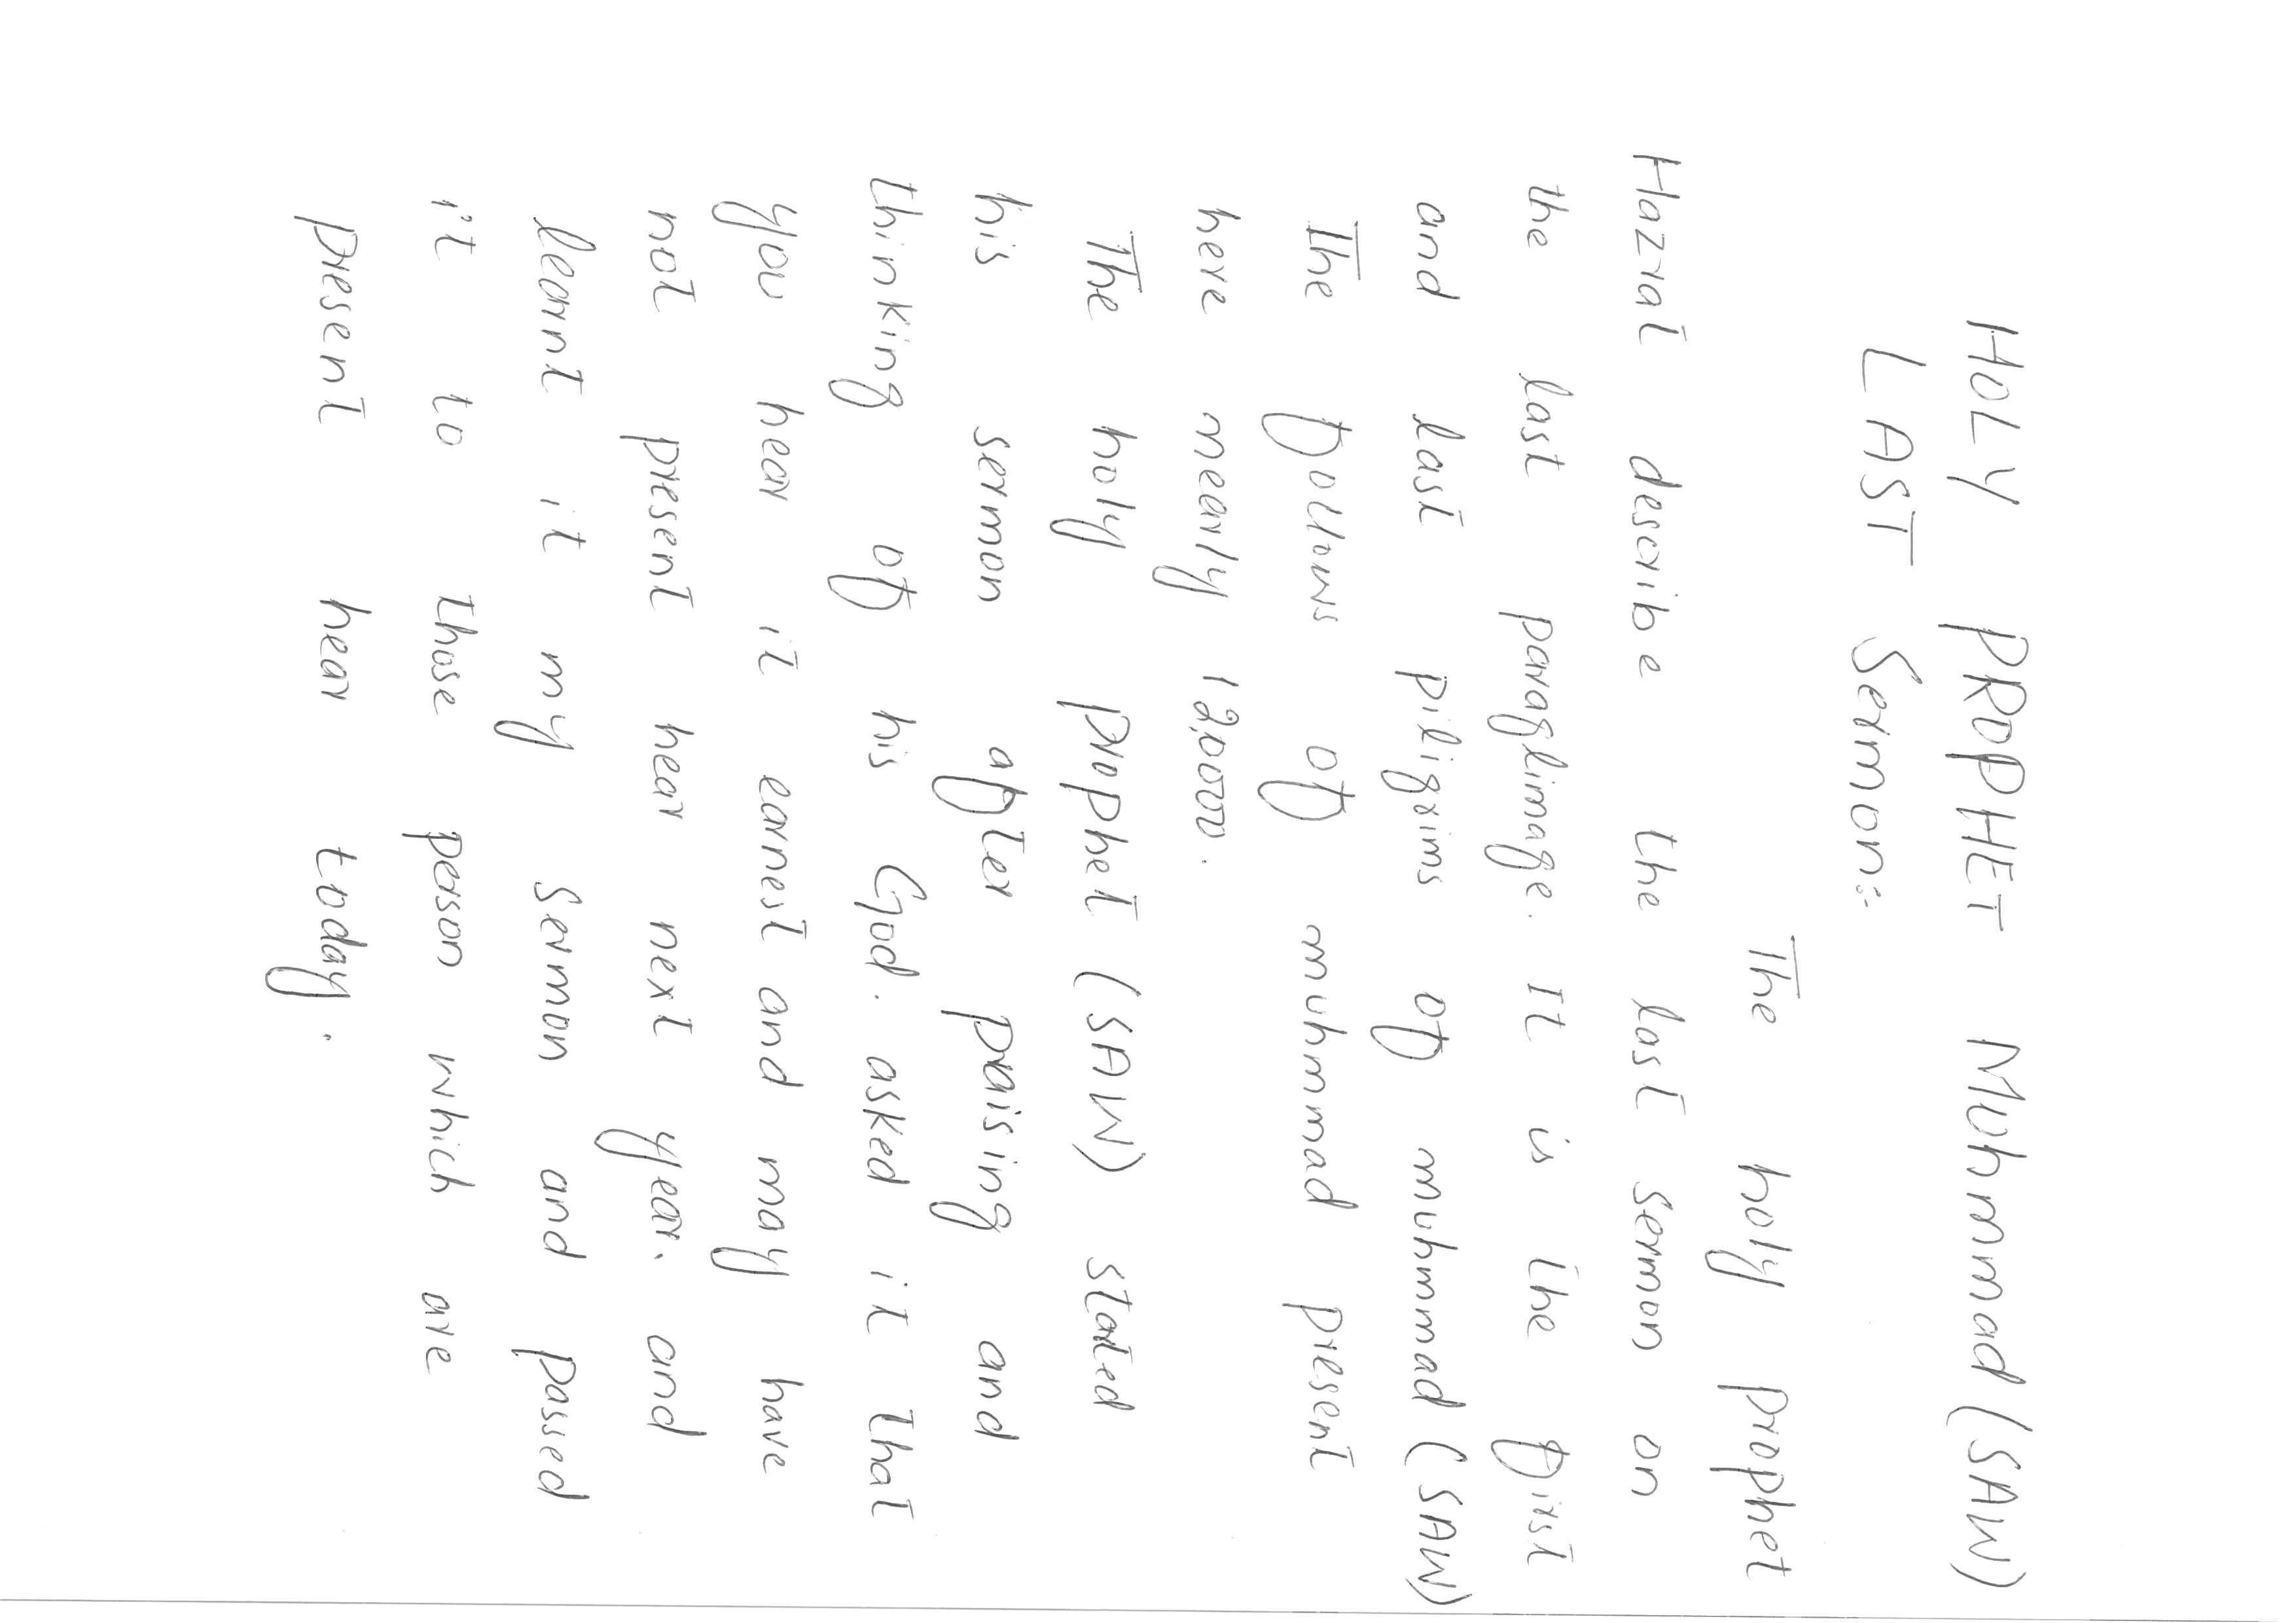 HOLY PROPHET Muhmmad (SAW)
LAST Sermon:-
The holy prophet
Hazrat describe the last sermon on
the last paraglimage. It is the first
and last piligrims of muhmmad (SAW)
The follows of muhmmad present
here nearly 12,0000.
The holy prophet (SAW) started
his sermon after praising and
thinking of his God. asked it that
you hear it earnest and may have
not present hear next year. and
learnt it my sermon and passed
it to those person which are
present hear today.